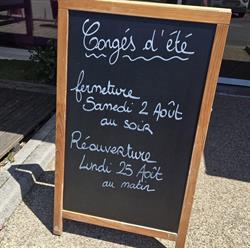 Congés d'été
fermeture
Samedi 2 Août
au soir
Réouverture
Lundi 25 Août
au matin